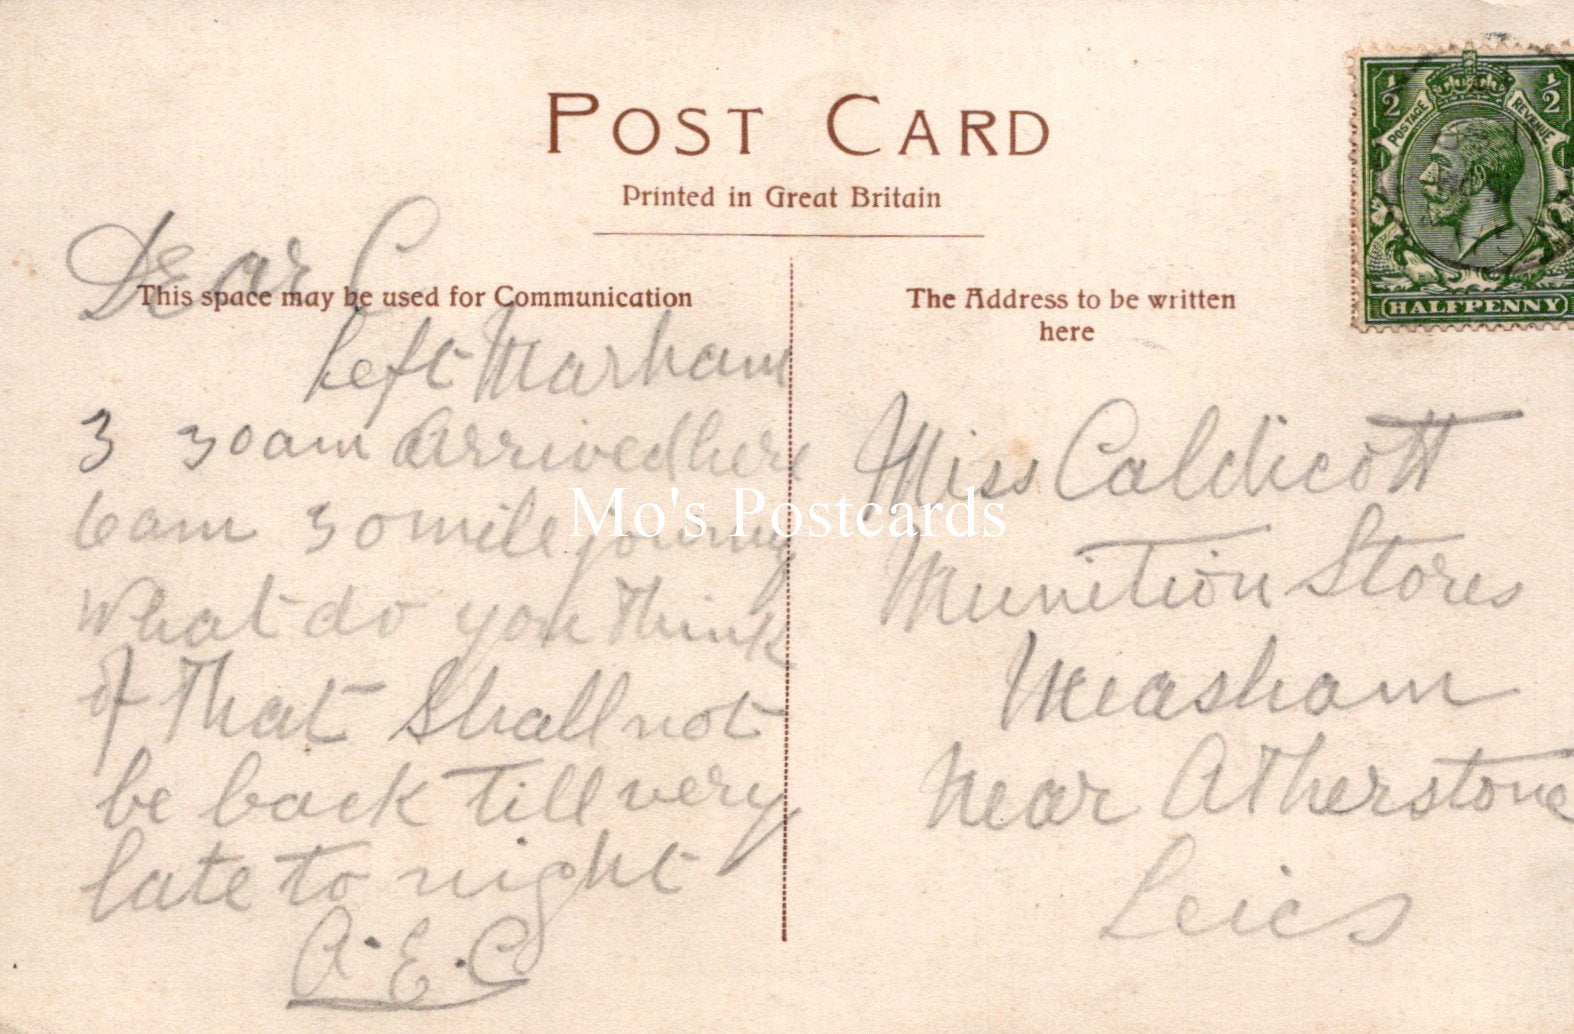 POST CARD
Printed in Great Britain
This space may be used for Communication
The Address to be written
here
POSTAGE REVENUE
½ ½
HALFPENNY
Dear C
Left Marham
3 30am arrived here
6am 30 mile journey
What do you think
of That Shall not
be back Till very
late to night
A.E.C.
Miss Caldicott
Munition Stores
Measham
Near Atherstone
Leics
Mo's Postcards